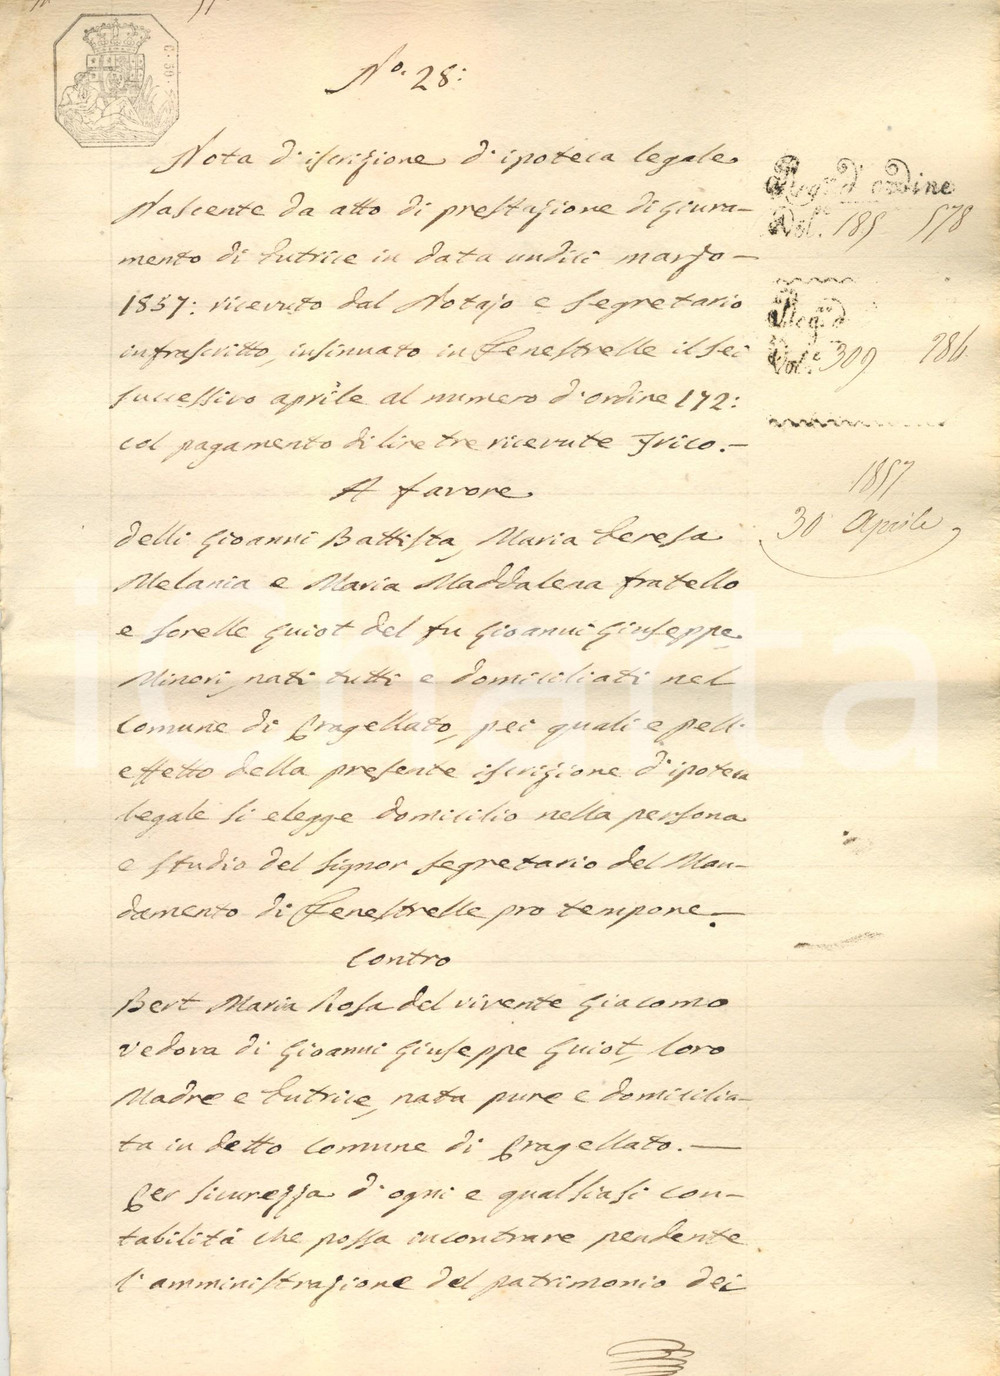 No. 28:
Nota d'iscrizione d'ipoteca legale
Nascente da atto di prestazione di giura-
mento di tutrice in data undici marzo -
1857: ricevuto dal Notajo e Segretario
infrascritto, insinuato in Fenestrelle il sei
successivo aprile al numero d'ordine 172:
col pagamento di lire tre ricevute Frico. -
A favore
delli Gioanni Battista, Maria Teresa
Melania e Maria Maddalena fratello
e sorelle Guiot del fu Gioanni Giuseppe
Minori, nati tutti e domiciliati nel
Comune di Pragellato, pei quali e pell'
effetto della presente iscrizione d'ipoteca
legale si elegge domicilio nella persona
e studio del Signor Segretario del Man-
damento di Fenestrelle pro tempone. -
Contro
Bert Maria Rosa del vivente Giacomo
vedova di Gioanni Giuseppe Guiot, loro
Madre e tutrice, nata pure e domicilia-
ta in detto Comune di Pragellato. -
Per sicurezza d'ogni e qualsiasi con-
tabilità che possa incontrare pendente
l'amministrazione del patrimonio dei
Reg.o d'ordine
Vol. 185 578
Reg.o d
Vol. 309 286
1857
30 Aprile
iCharta